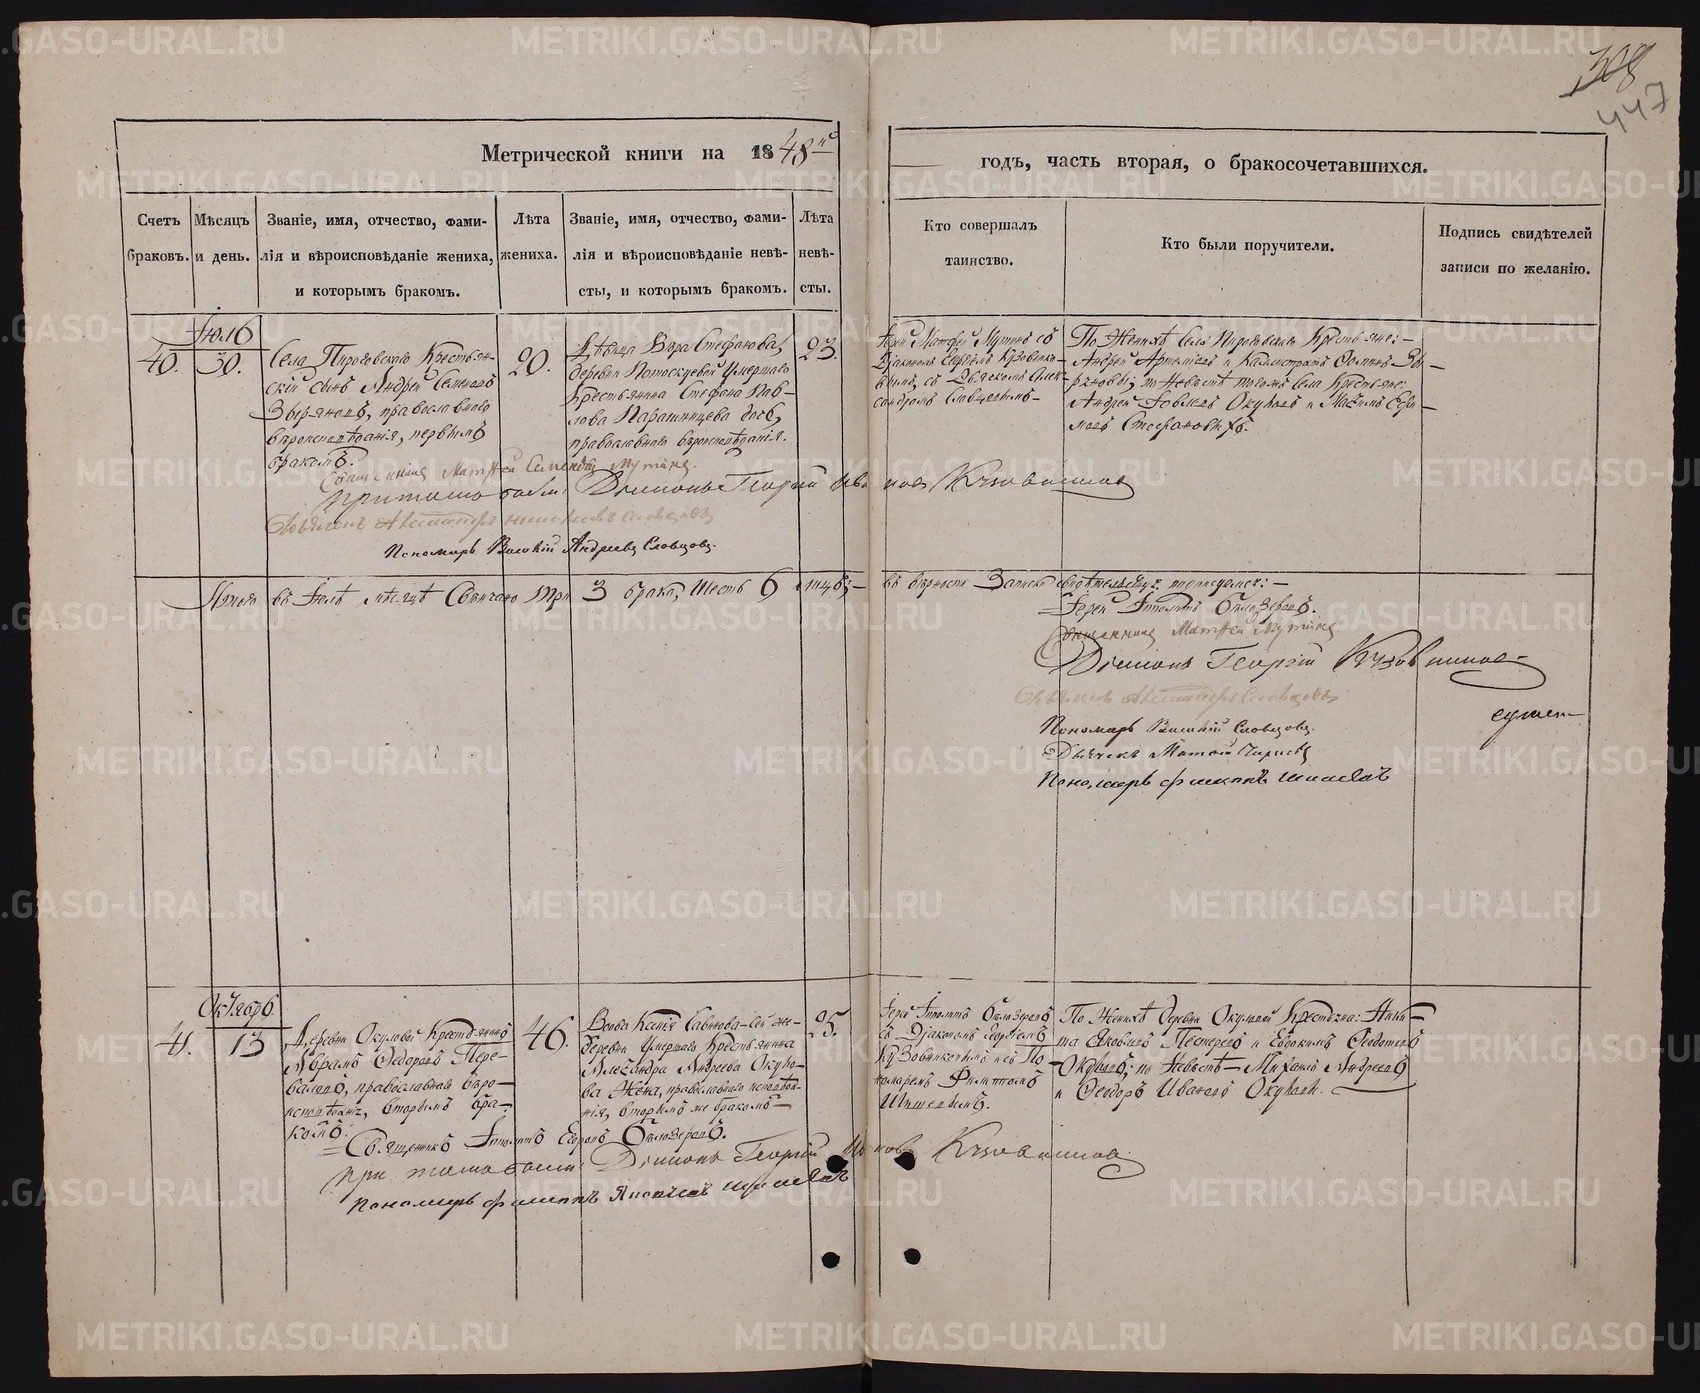 308
447
Метрической книги на 1848й
годъ, часть вторая, о бракосочетавшихся.
Счетъ браковъ.
Мѣсяцъ и день.
Званіе, имя, отчество, фами-
лія и вѣроисповѣданіе жениха,
и которымъ бракомъ.
Лѣта
жениха.
Званіе, имя, отчество, фами-
лія и вѣроисповѣданіе невѣ-
сты, и которымъ бракомъ.
Лѣта
невѣ-
сты.
Кто совершалъ
таинство.
Кто были поручители.
Подпись свидѣтелей
записи по желанію.
40.
30.
Села Пироговскаго Крестьян-
скій сынъ Андрей Семеновъ
Зыряновъ, православнаго
вѣроисповѣданія, первымъ
бракомъ.
20.
Дѣвица Вѣра Стефанова,
деревни умершаго
Крестьянина Стефана Пав-
лова дочь,
православнаго вѣроисповѣданія.
23.
Іерей Матфей Мутинъ съ
Діакономъ Георгіемъ Кузовнико-
вымъ, съ Дьячкомъ Алек-
сандромъ Словцовымъ
По Женихѣ Села Пироговскаго Крестьяне:
Андрей и Зы-
ряновы; по Невѣстѣ тогожъ Села Крестьяне:
Андрей Іовлевъ Окуловъ и
Стефановыхъ.
Священникъ Матфей Мутинъ.
При томъ были: Діаконъ Георгій Ивановъ Кузовниковъ
Дьячекъ Александръ Словцовъ
Пономарь Василій Андреевъ Словцовъ.
Итого въ Іюлѣ мѣсяцѣ Свѣнчано три 3 брака, шесть 6 лицъ;
въ вѣрности Записи свидѣтельствуемъ подписуемся:
Іерей Ипполитъ Бѣлозеровъ.
Священникъ Матфей Мутинъ
Діаконъ Георгій Кузовниковъ
Дьячекъ Александръ Словцовъ
Пономарь Василій Словцовъ.
Дьячекъ
Пономарь Филиппъ Шишевъ
Октябрь
41.
13
Деревни Окуловой Крестьянинъ
Абрамъ Ѳедоровъ Пере-
валовъ, православнаго вѣро-
исповѣданія, вторымъ бра-
комъ.
46.
Вдова Ксенія Савинова
деревни умершаго Крестьянина
Александра Андреева Окуло-
ва Жена, православнаго исповѣда-
нія, вторымъ же бракомъ
25.
Іерей Ипполитъ Бѣлозеровъ
съ Діакономъ Георгіемъ
Кузовниковымъ и съ По-
номаремъ Филиппомъ
Шишевымъ.
По Женихѣ деревни Окуловой Крестьяне: Ники-
та Яковлевъ Пестеревъ и Евдокимъ Ѳедотовъ
Окуловъ; по Невѣстѣ Михаилъ Андреевъ
и Ѳеодоръ Ивановъ Окуловы.
Священникъ Ипполитъ Егоровъ Бѣлозеровъ.
При томъ были: Діаконъ Георгій Ивановъ Кузовниковъ
Пономарь Филиппъ Шишевъ
METRIKI.GASO-URAL.RU